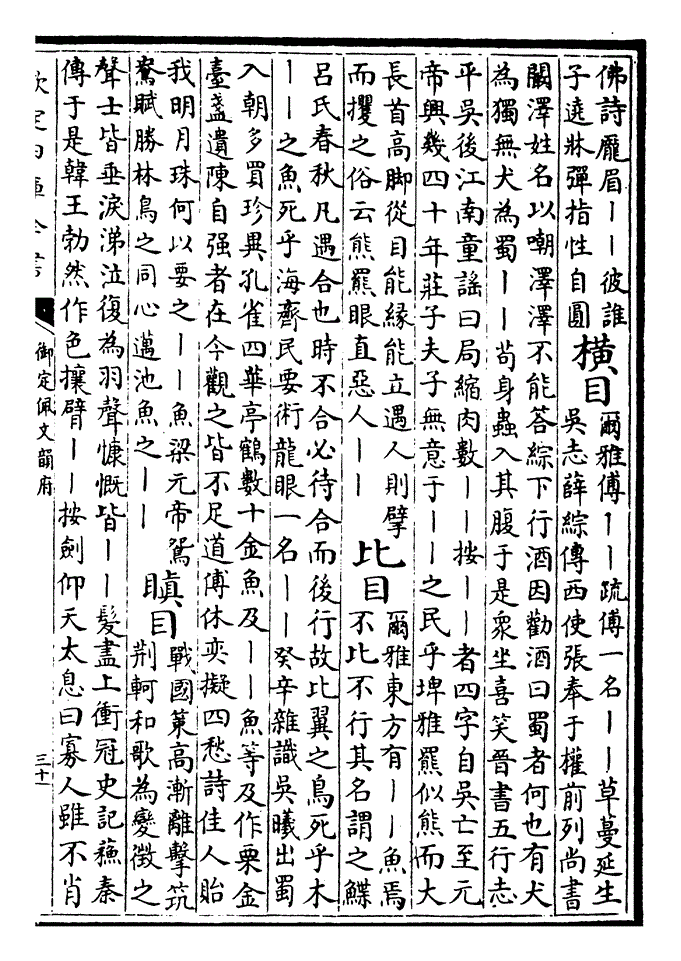 佛詩龎眉丨丨彼誰
子遶牀彈指性自圓
橫目
爾雅傅丨丨疏傅一名丨丨草蔓延生
吳志薛綜傳西使張奉于權前列尚書
闞澤姓名以嘲澤澤不能答綜下行酒因勸酒曰蜀者何也有犬
為獨無犬為蜀丨丨苟身蟲入其腹于是衆坐喜笑晉書五行志
平吳後江南童謠曰局縮肉數丨丨按丨丨者四字自吳亡至元
帝興幾四十年莊子夫子無意于丨丨之民乎埤雅羆似熊而大
長首高脚從目能緣能立遇人則擘
而攫之俗云熊羆眼直惡人丨丨
比目
爾雅東方有丨丨魚焉
不比不行其名謂之鰈
呂氏春秋凡遇合也時不合必待合而後行故比翼之鳥死乎木
丨丨之魚死乎海齊民要術龍眼一名丨丨癸辛雜識吳曦出蜀
入朝多買珍異孔雀四華亭鶴數十金魚及丨丨魚等及作粟金
臺盞遺陳自强者在今觀之皆不足道傅休奕擬四愁詩佳人貽
我明月珠何以要之丨丨魚梁元帝鴛
鴦賦勝林鳥之同心邁池魚之丨丨
瞋目
戰國策高漸離擊筑
荆軻和歌為變徵之
聲士皆垂淚涕泣復為羽聲慷慨皆丨丨髮盡上衝冠史記蘇秦
傳于是韓王勃然作色攘臂丨丨按劍仰天太息曰寡人雖不肖
欽定四庫全書
御定佩文韻府